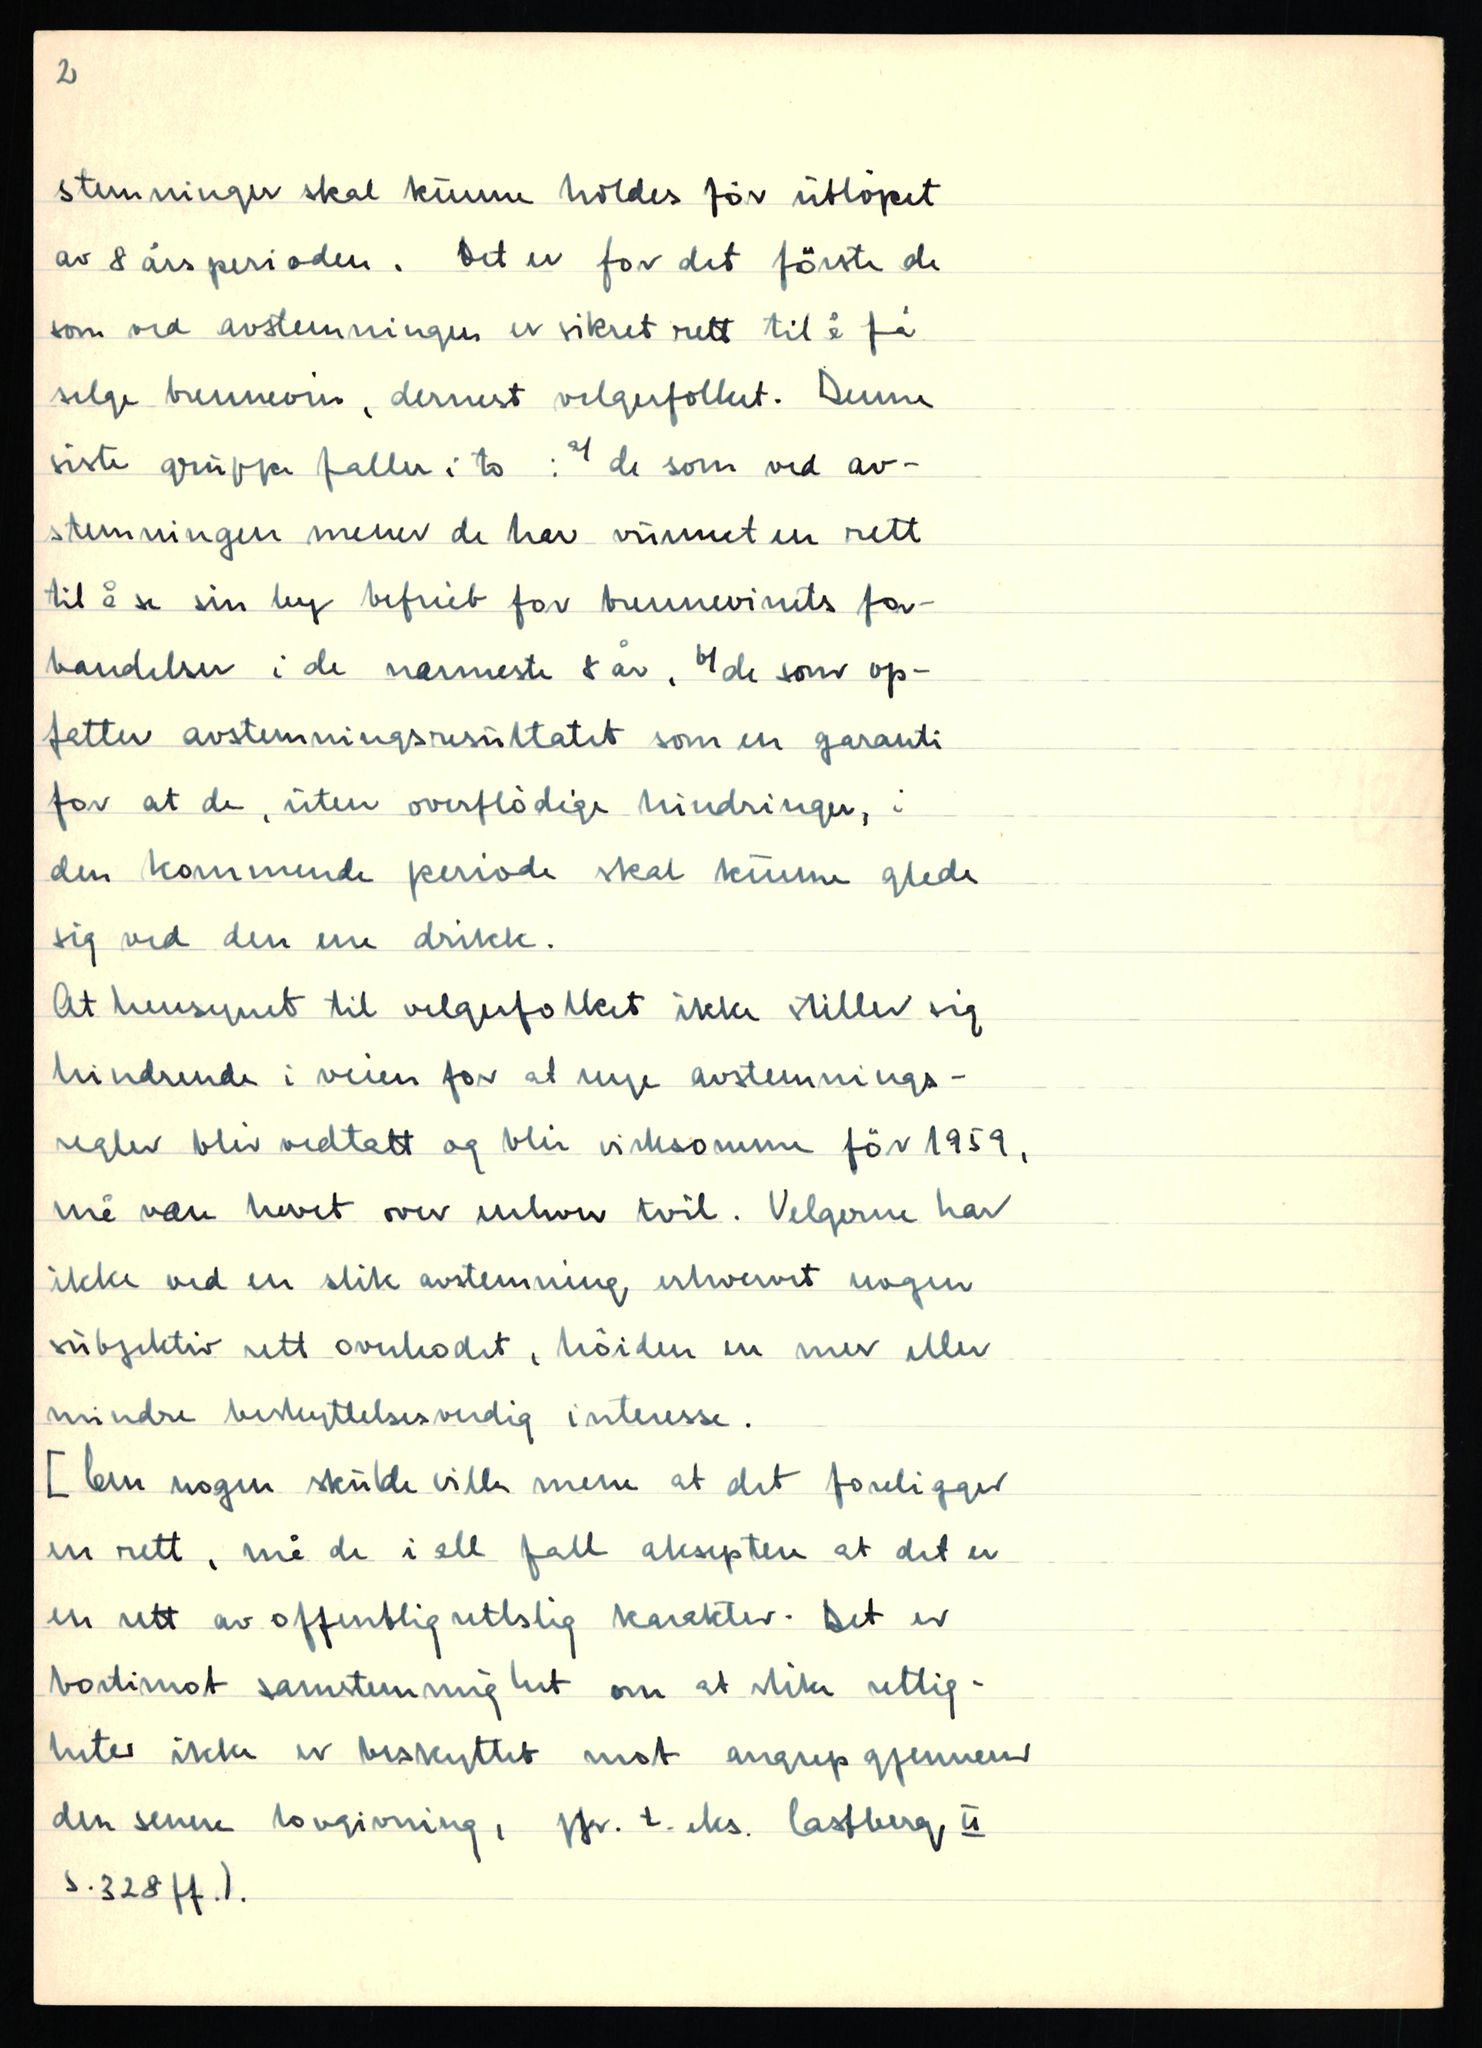 2
stemninger skal kunne holdes før utløpet
av 8 årsperioden. Det er for det første de
som ved avstemningen er sikret rett til å få
selge brennevin, dernest velgerfolket. Denne
siste gruppe faller i to : a/ de som ved av-
stemningen mener de har vunnet en rett
til å se sin by befriet for brennevinets for-
bandelser i de nærmeste 8 år, b/ de som op-
fatter avstemningsresultatet som en garanti
for at de, uten overflødige hindringer, i
den kommende periode skal kunne glede
sig ved den ene drikk.
At hensynet til velgerfolket ikke stiller sig
hindrende i veien for at nye avstemnings-
regler blir vedtatt og blir virksomme før 1959,
må være hevet over enhver tvil. Velgerne har
ikke ved en slik avstemning erhvervet nogen
subjektiv rett overhodet, høiden en mer eller
mindre beskyttelsesverdig interesse.
[Om nogen skulde ville mene at det foreligger
en rett, må de i all fall akseptere at det er
en rett av offentligrettslig karakter. Det er
bortimot samstemmighet om at slike rettig-
heter ikke er beskyttet mot angrep gjennem
den senere lovgivning, jfr. t. eks. Castberg II
s. 328 ff.).